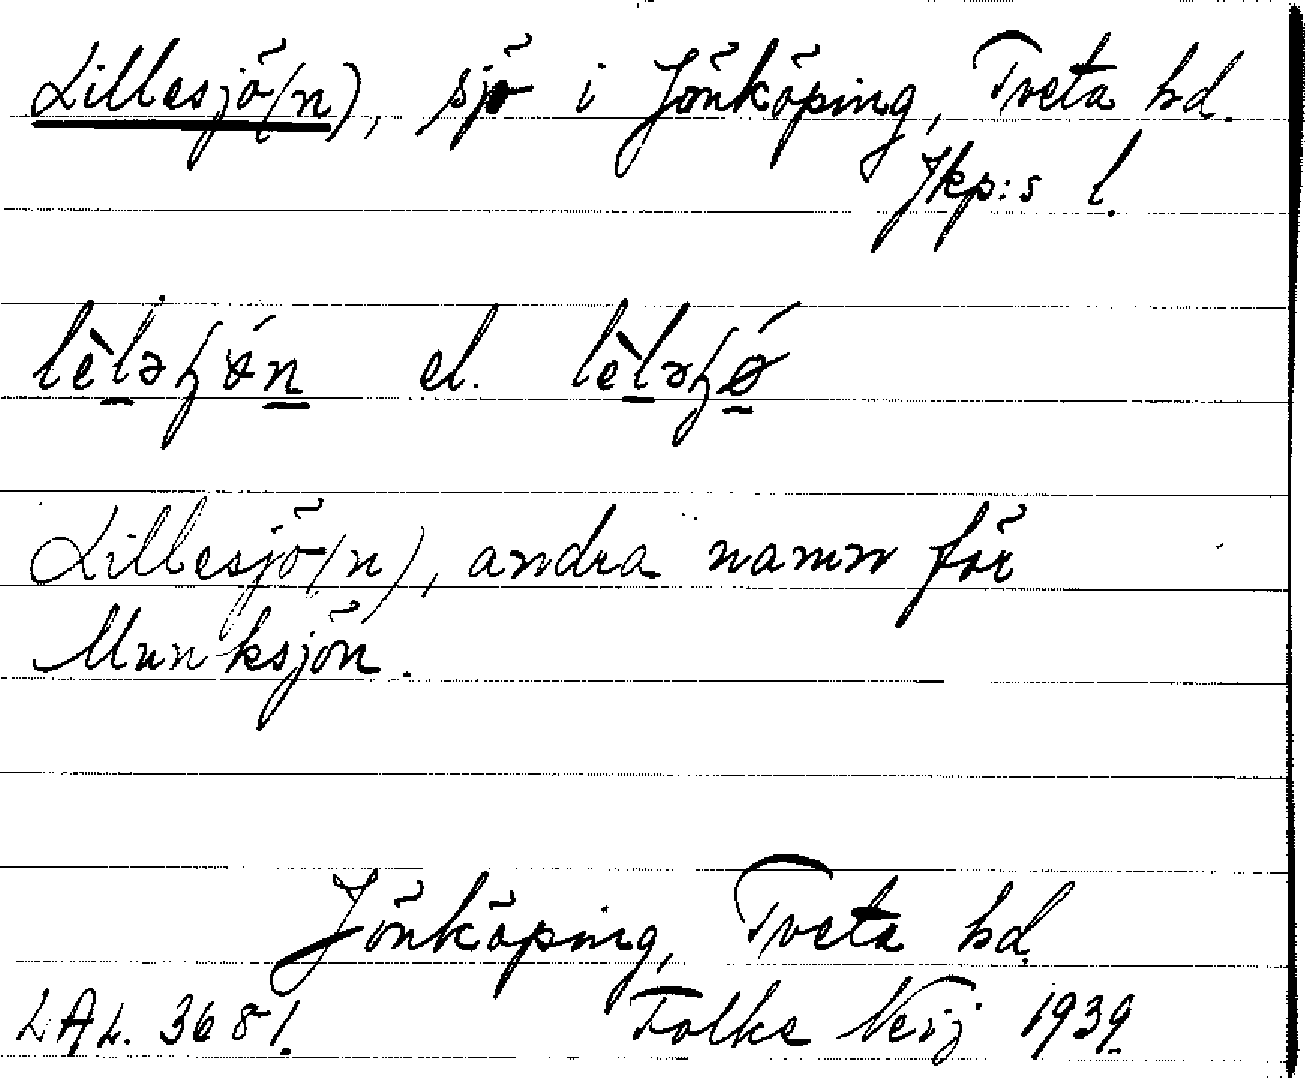 Lillesjö(n), sjö i Jönköping, Tveta hd.
Jkp:s l.
lèləɧøń el. lèləɧǿ
Lillesjö(n), andra namn för
Munksjön.
Jönköping, Tveta hd.
LAL. 3681. Folke Neij 1939.